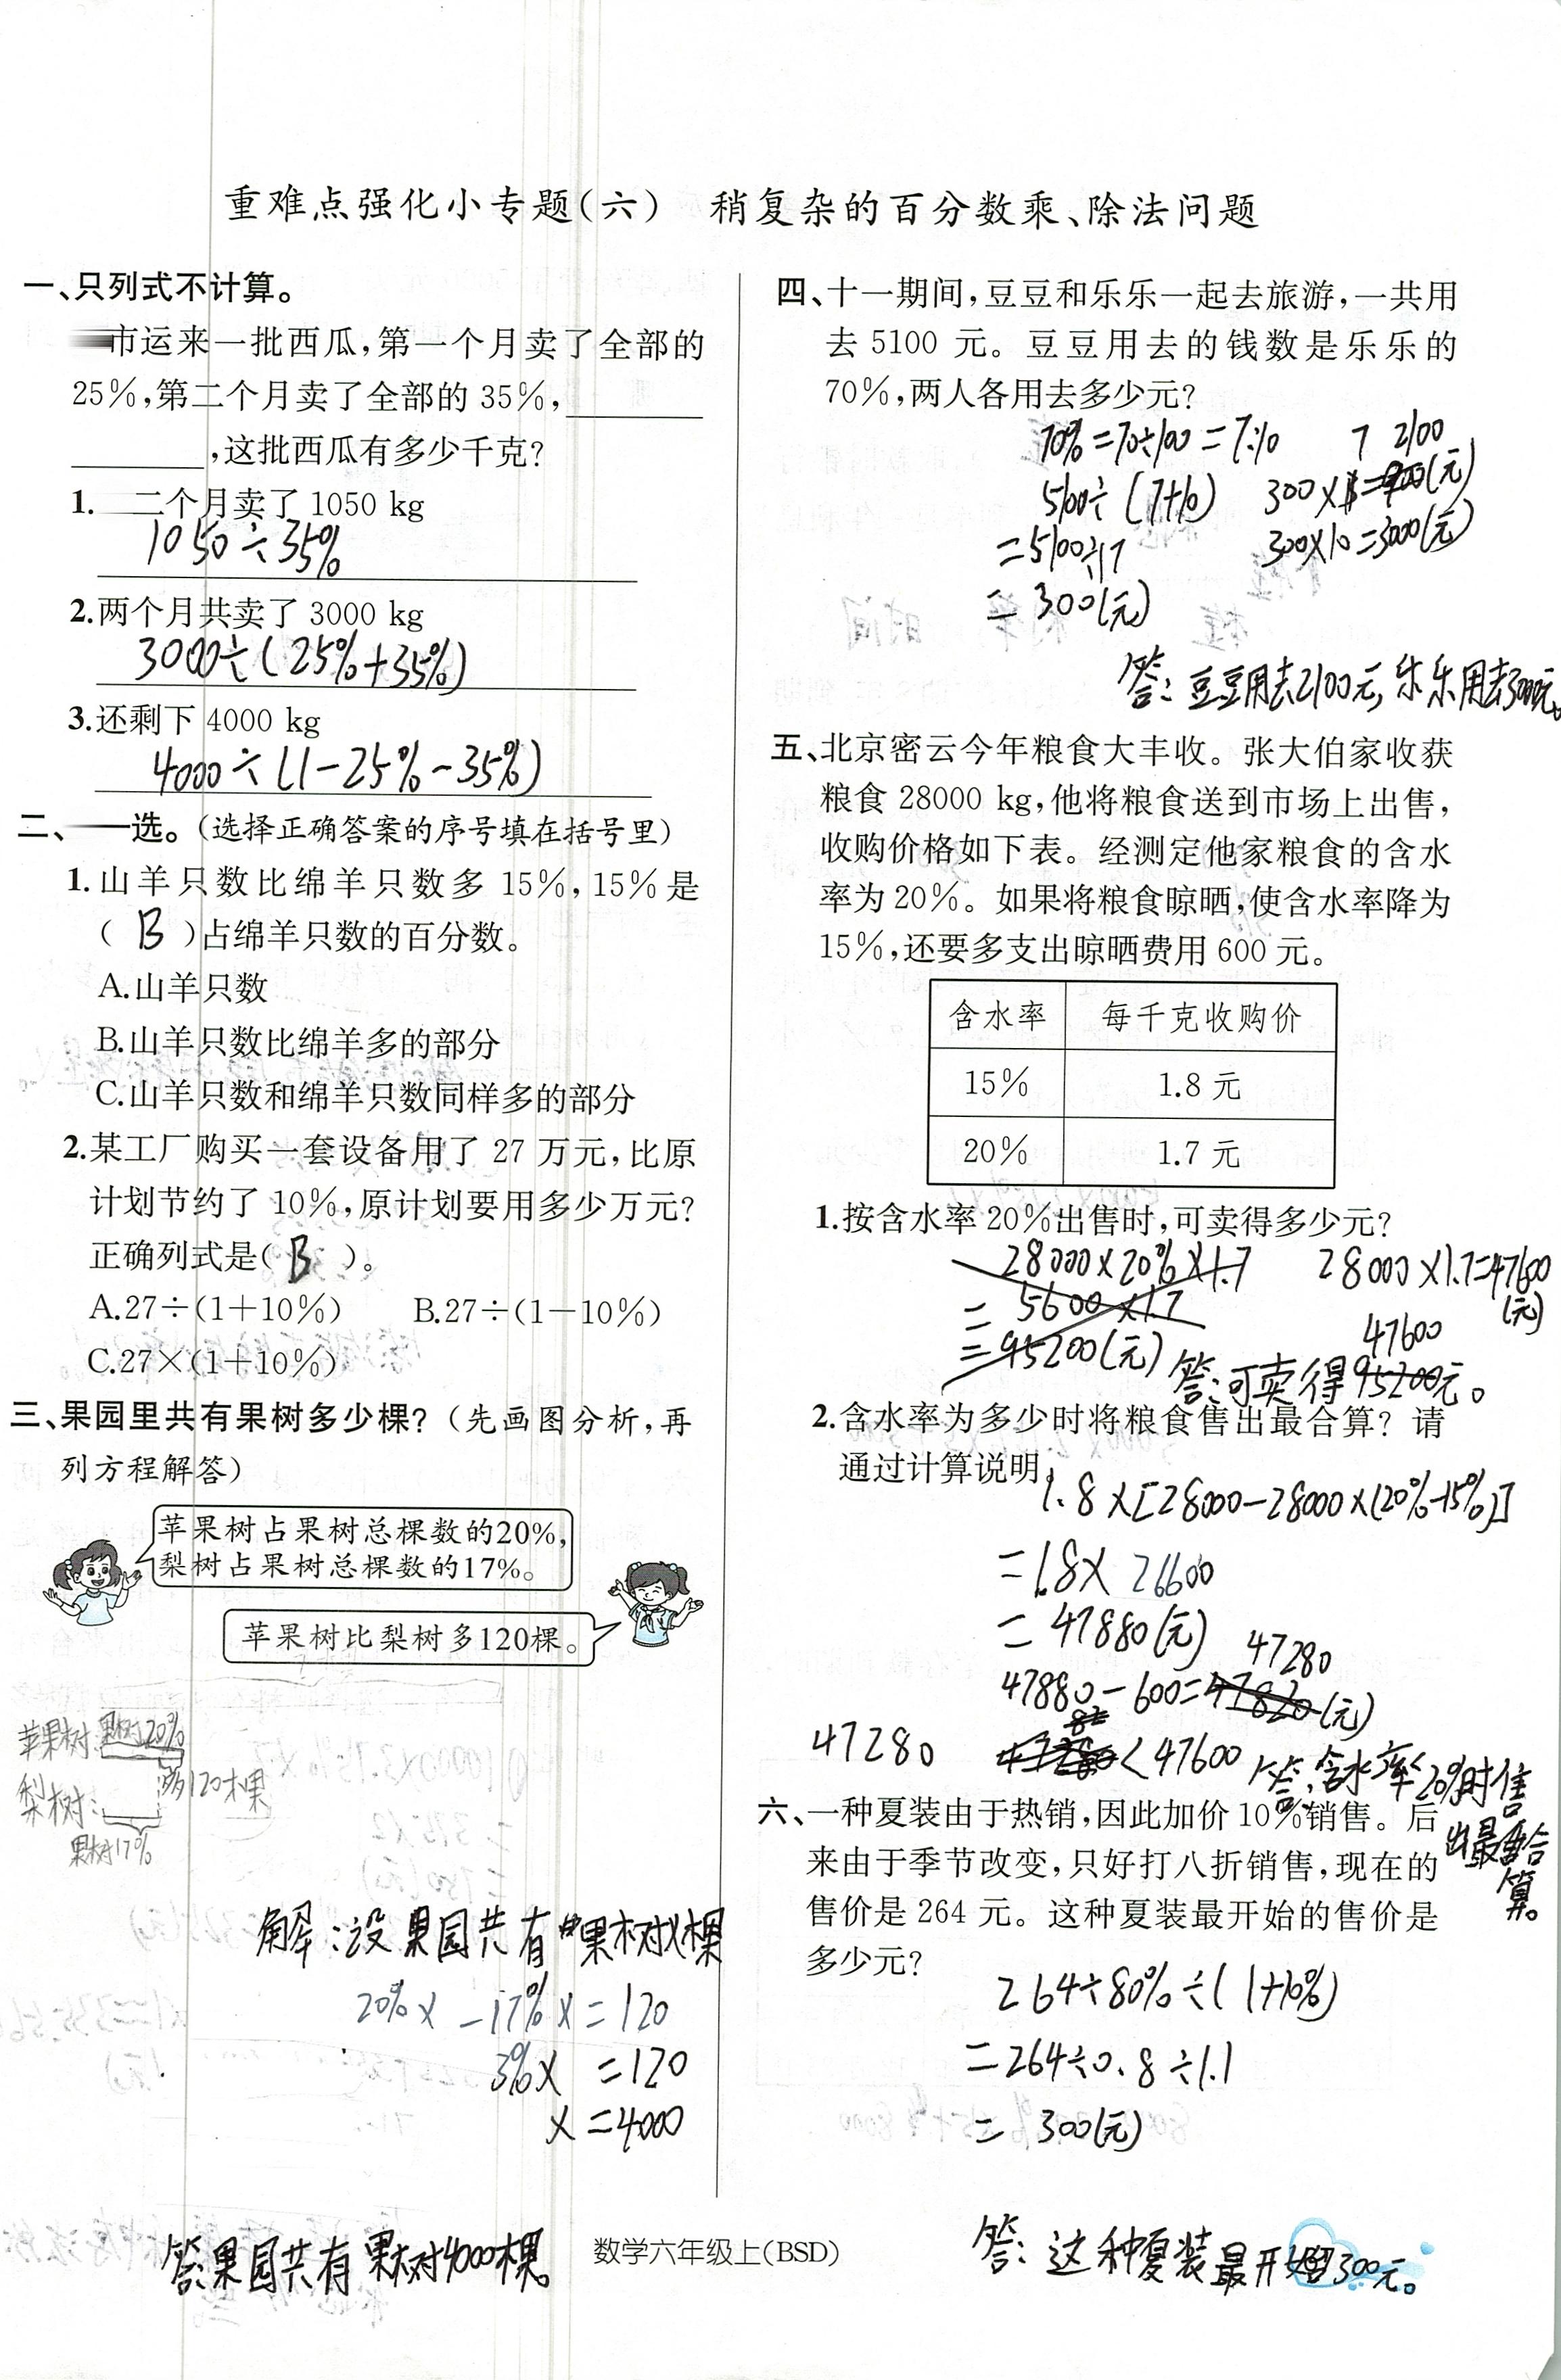 重难点强化小专题(六) 稍复杂的百分数乘、除法问题
一、只列式不计算。
市运来一批西瓜,第一个月卖了全部的
25%,第二个月卖了全部的 35%,________
________,这批西瓜有多少千克?
1. 二个月卖了 1050 kg
1050÷35%
2.两个月共卖了 3000 kg
3000÷(25%+35%)
3.还剩下 4000 kg
4000÷(1-25%-35%)
二、选。(选择正确答案的序号填在括号里)
1.山羊只数比绵羊只数多 15%,15%是
( B )占绵羊只数的百分数。
A.山羊只数
B.山羊只数比绵羊多的部分
C.山羊只数和绵羊只数同样多的部分
2.某工厂购买一套设备用了 27 万元,比原
计划节约了 10%,原计划要用多少万元?
正确列式是( B )。
A.27÷(1+10%) B.27÷(1-10%)
C.27×(1+10%)
三、果园里共有果树多少棵?(先画图分析,再
列方程解答)
苹果树占果树总棵数的20%,
梨树占果树总棵数的17%。
苹果树比梨树多120棵。
苹果树:果树20%
多120棵
梨树:
果树17%
解:设果园共有果树x棵
20%x-17%x=120
3%x=120
x=4000
答:果园共有果树4000棵。
四、十一期间,豆豆和乐乐一起去旅游,一共用
去 5100 元。豆豆用去的钱数是乐乐的
70%,两人各用去多少元?
70%=70÷100=7:10 7 2100
5100÷(7+10) 300×=(元)
=5100÷17 300×10=3000(元)
=300(元)
答:豆豆用去2100元,乐乐用去3000元。
五、北京密云今年粮食大丰收。张大伯家收获
粮食 28000 kg,他将粮食送到市场上出售,
收购价格如下表。经测定他家粮食的含水
率为 20%。如果将粮食晾晒,使含水率降为
15%,还要多支出晾晒费用 600 元。
含水率 每千克收购价
15% 1.8 元
20% 1.7 元
1.按含水率 20%出售时,可卖得多少元?
28000×20%×1.7 28000×1.7=47600
(元)
=5600×1.7
=95200(元)
47600
答:可卖得95200元。
2.含水率为多少时将粮食售出最合算?请
通过计算说明。
1.8×[28000-28000×(20%-15%)]
=1.8×26600
=47880(元)
47280
47880-600=47820(元)
47280 <47600 答:含水率20%时售
出最合
算。
六、一种夏装由于热销,因此加价 10%销售。后
来由于季节改变,只好打八折销售,现在的
售价是 264 元。这种夏装最开始的售价是
多少元?
264÷80%÷(1+10%)
=264÷0.8÷1.1
=300(元)
答:这种夏装最开始300元。
数学六年级上(BSD)